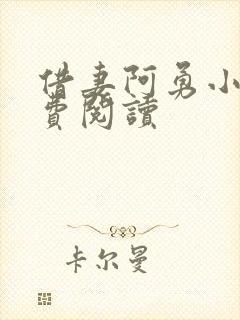 借妻阿勇小
費閱讀
卡尔曼